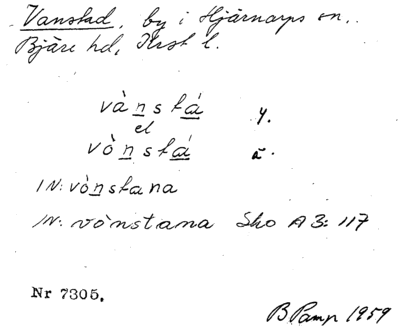 Vanstad, by i Hjärnarps sn,.
Bjäre hd, Krist l.
vànstá y.
el
vònstá ä.
IN: vònstana
IN: vònstana Sko A3: 117
Nr 7305.
B Pamp 1959